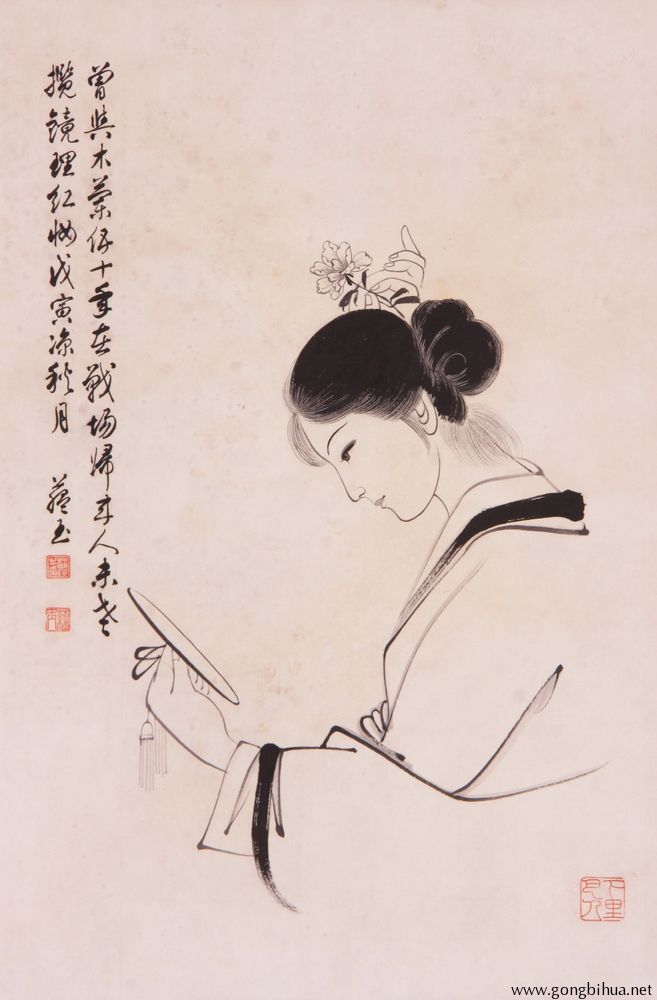 曾與木蘭十年在戰場歸來人未老
攬鏡理紅妝戊寅涼秋月
玉
www.gongbihua.net